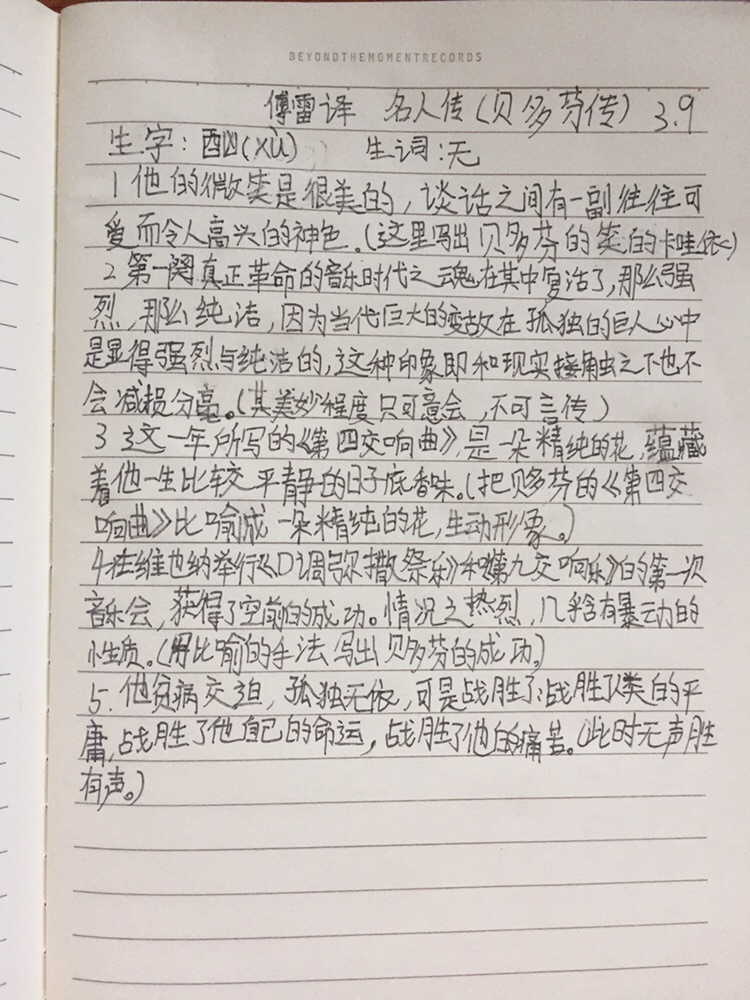 BEYONDTHEMOMENTRECORDS
傅雷译 名人传(贝多芬传) 3.9
生字:酗(xù) 生词:无
1他的微笑是很美的,谈话之间有一副往往可
爱而令人高兴的神色。(这里写出贝多芬的笑的卡哇依)
2第一阕真正革命的音乐时代之魂在其中复活了,那么强
烈,那么纯洁,因为当代巨大的变故在孤独的巨人心中
是显得强烈与纯洁的,这种印象即和现实接触之下也不
会减损分毫。(其美妙程度只可意会,不可言传)
3这一年所写的《第四交响曲》,是一朵精纯的花,蕴藏
着他一生比较平静的日子底香味。(把贝多芬的《第四交
响曲》比喻成一朵精纯的花,生动形象。)
4在维也纳举行《D调弥撒祭乐》和《第九交响乐》的第一次
音乐会,获得了空前的成功。情况之热烈,几乎含有暴动的
性质。(用比喻的手法写出贝多芬的成功。)
5.他贫病交迫,孤独无依,可是战胜了:战胜了人类的平
庸,战胜了他自己的命运,战胜了他的痛苦。(此时无声胜
有声。)